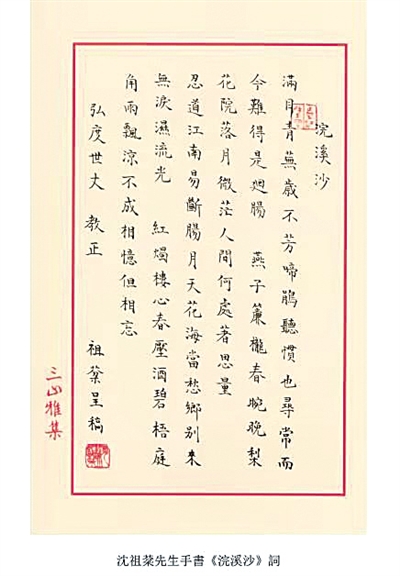 浣溪沙
滿目青蕪歲不芳啼鵑聽慣也尋常而
今難得是廻腸　燕子簾櫳春晼晚梨
花院落月微茫人間何處著思量
忍道江南易斷腸月天花海當愁鄉别來
無淚濕流光　紅燭樓心春壓酒碧梧庭
角雨飄涼不成相憶但相忘
弘度世丈　教正
祖棻呈稿
三山雅集
沈祖棻先生手書《浣溪沙》詞